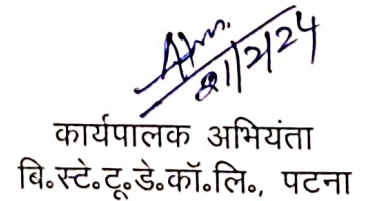 21/2/24
कार्यपालक अभियंता
बि॰स्टे॰टू॰डे॰कॉ॰लि॰, पटना